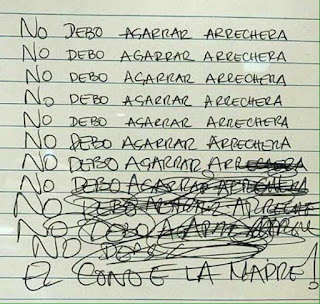 No DEBO AGARRAR ARRECHERA
No DEBO AGARRAR ARRECHERA
No DEBO AGARRAR ARRECHERA
No DEBO AGARRAR ARRECHERA
No DEBO AGARRAR ARRECHERA
No DEBO AGARRAR ARRECHERA
No DEBO AGARRAR ARRECHERA
No DEBO AGARRAR ARRECHERA
No DEBO AGARRAR ARRECHE
No DEBO AGARRAR
No DEBO
EL COÑO E LA MADRE!